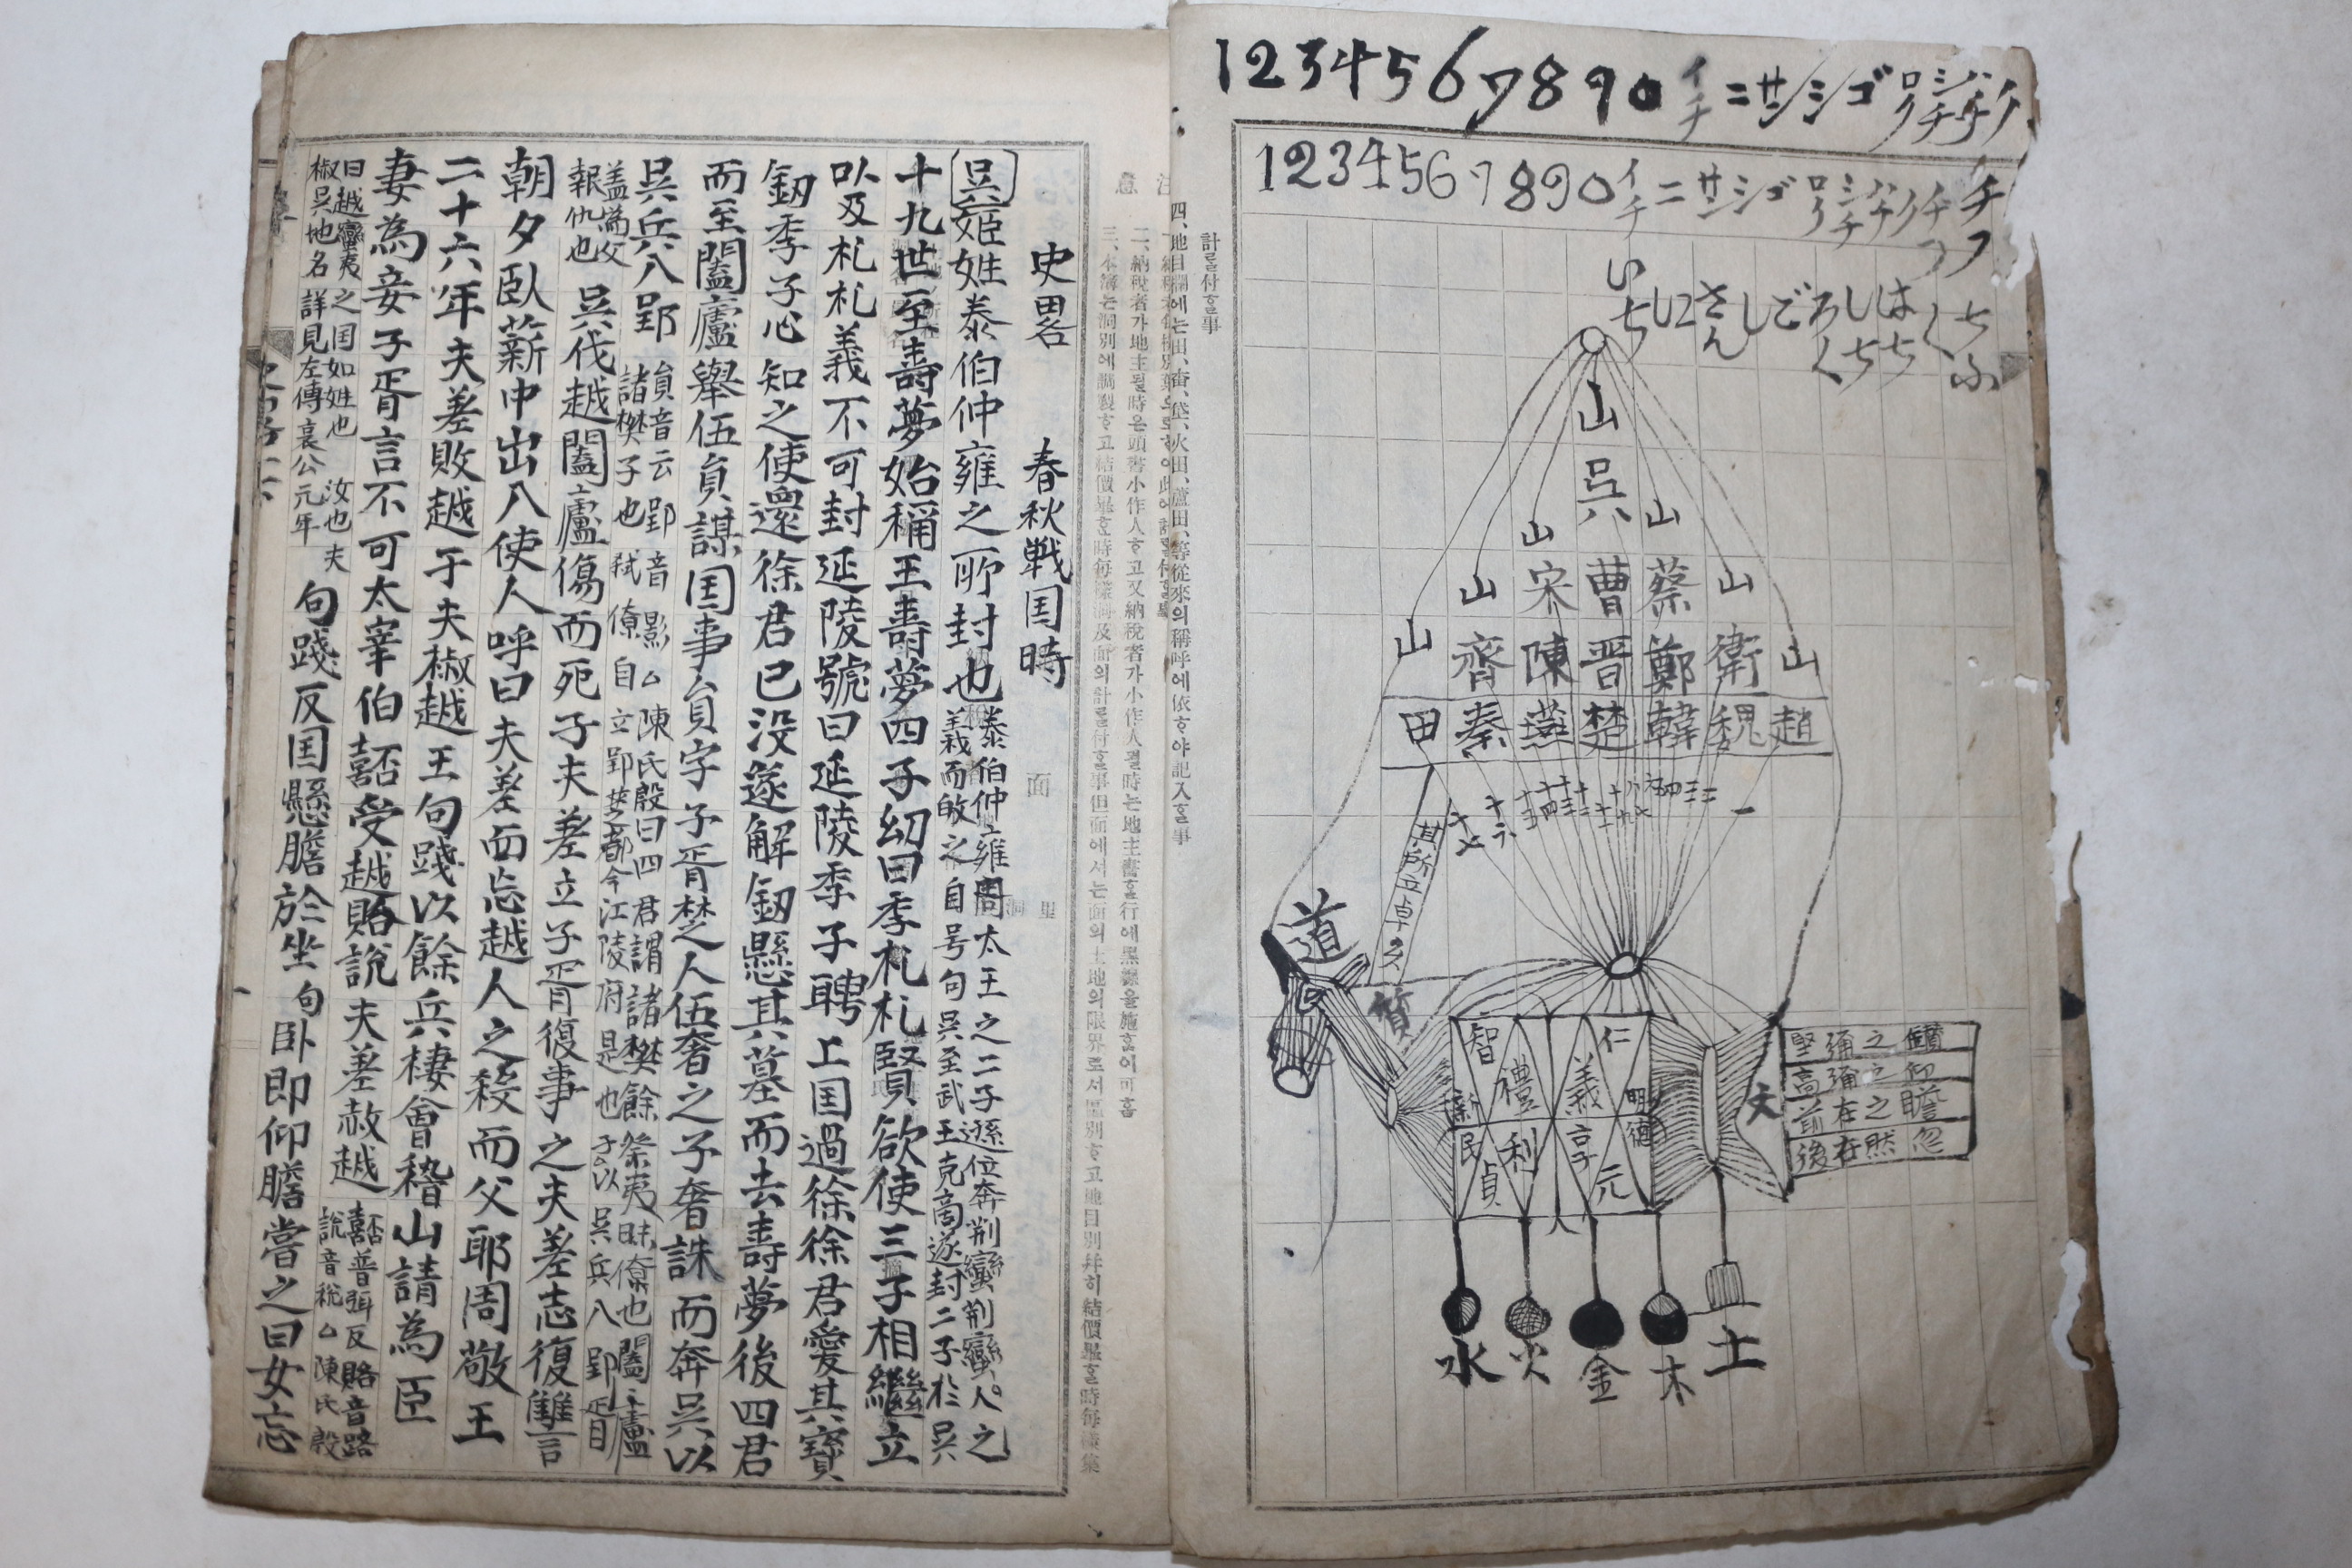 1234567890イチニサンシゴロクシチハチク
1234567890イチニサンシゴロクシチハチクチチフ
いちにさんしごろくしちはちくちふ
山
吳
山 山
山 宋 曹 蔡 山
山 齊 陳 晋 鄭 衛 山
田 秦 燕 楚 韓 魏 趙
十七 十六 十五 十四 十三 十二 十一 十 九 八 七 六 五 四 三 二 一
其所立卓久
道
質
智 禮 義 仁
新民 明德
貞 利 亨 元
天
人
堅彌之鑽
高彌之仰
前在之瞻
後在然忽
水 火 金 木 土
計를付홀事
四、地目欄에는田、畓、垈、火田、蘆田、等從來의稱呼에依ᄒᆞ야記入홀事
二、納稅者가地主될時은頭書小作人ᄒᆞ고又納稅者가小作人될時는地主書ᄒᆞᆯ行에黑線을施홈이可홈
注意
史畧 春秋戰国時
面
里
洞
吳姬姓泰伯仲雍之所封也 泰伯仲雍周太王之二子遜位奔荆蠻荆蠻人之
義而敀之自号句吳至武王克商遂封二子於吳
十九世至壽夢始稱王壽夢四子幼曰季札札賢欲使三子相繼立
以及札札義不可封延陵號曰延陵季子聘上国過徐徐君愛其寶
釼季子心知之使還徐君已没遂解釼懸其墓而去壽夢後四君
而至闔廬舉伍員謀国事員字子胥楚人伍奢之子奢誅而奔吳以
吳兵入郢 員音云郢音影 陳氏殷曰四君謂諸樊餘祭夷昧僚也闔廬
諸樊子也弑僚自立郢楚都今江陵府是也子以吳兵入郢
盖為父
報仇也
吳伐越闔廬傷而死子夫差立子胥復事之夫差志復讐
朝夕臥薪中出入使人呼曰夫差而忘越人之殺而父耶周敬王
二十六年夫差敗越于夫椒越王句踐以餘兵棲會稽山請為臣
妻為妾子胥言不可太宰伯嚭受越賂說夫差赦越 嚭普弭反賂音路
說音稅 陳氏殷
曰越蠻夷之国如姓也 汝也夫
椒吳地名詳見左傳哀公元年
句踐反国懸膽於坐臥即仰膽嘗之曰女忘